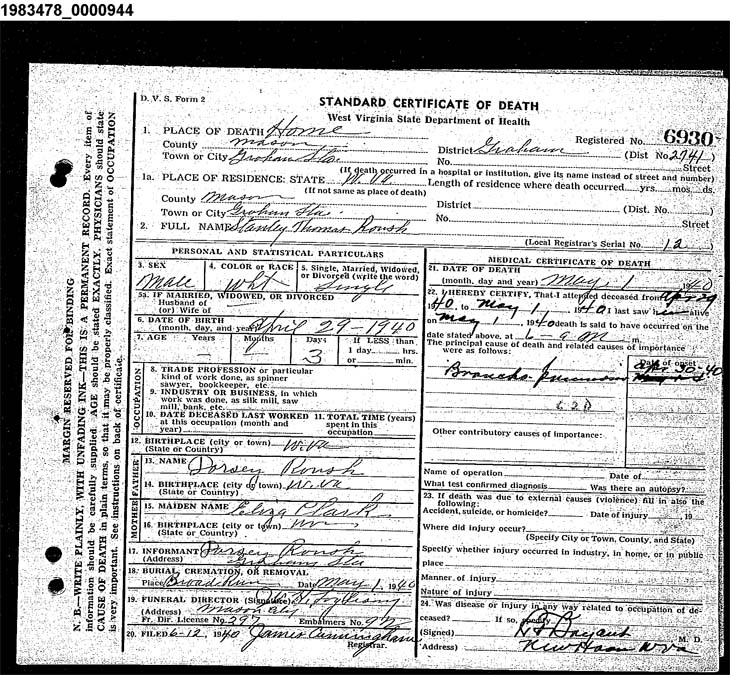 1983478_0000944
D. V. S. Form 2
STANDARD CERTIFICATE OF DEATH
West Virginia State Department of Health
1. PLACE OF DEATH Home
Registered No. 6930
County Mason
District Graham (Dist No. 2741)
Town or City Graham Sta. No. Street
(If death occurred in a hospital or institution, give its name instead of street and number)
1a. PLACE OF RESIDENCE: STATE W. Va Length of residence where death occurred yrs. mos. ds.
(If not same as place of death)
County Mason District (Dist. No. )
Town or City Graham Sta. No. Street
2. FULL NAME Stanley Thomas Roush
(Local Registrar's Serial No. 12 )
PERSONAL AND STATISTICAL PARTICULARS
3. SEX Male
4. COLOR or RACE Wht
5. Single, Married, Widowed, or Divorced (write the word) Single
5a. IF MARRIED, WIDOWED, OR DIVORCED
Husband of
(or) Wife of
6. DATE OF BIRTH
(month, day, and year) April 29-1940
7. AGE Years Months Days 3 If LESS than
1 day hrs.
or min.
OCCUPATION
8. TRADE PROFESSION or particular
kind of work done, as spinner
sawyer, bookkeeper, etc.
9. INDUSTRY OR BUSINESS, in which
work was done, as silk mill, saw
mill, bank, etc.
10. DATE DECEASED LAST WORKED
at this occupation (month and
year)
11. TOTAL TIME (years)
spent in this
occupation
12. BIRTHPLACE (city or town) W. Va
(State or Country)
FATHER
13. NAME Dorsey Roush
14. BIRTHPLACE (city or town) W. Va
(State or Country)
MOTHER
15. MAIDEN NAME Eliza Clark
16. BIRTHPLACE (city or town)
(State or Country)
17. INFORMANT Dorsey Roush
(Address) Grahams Sta
18. BURIAL, CREMATION, OR REMOVAL
Place Broad Run Date May 1, 1940
19. FUNERAL DIRECTOR (Signature)
(Address) Mason City
Fr. Dir. License No. 297 Embalmers No.
20. FILED 6-12, 1940 James Cunningham
Registrar.
MEDICAL CERTIFICATE OF DEATH
21. DATE OF DEATH
(month, day and year) May 1 1940
22. I HEREBY CERTIFY, That I attended deceased from Apr 29
1940, to May 1, 1940 I last saw h alive
on May 1, 1940 death is said to have occurred on the
date stated above, at 6 a m.
The principal cause of death and related causes of importance
were as follows:
Date of onset
Broncho pneumonia Apr. 30-40
Other contributory causes of importance:
Name of operation Date of
What test confirmed diagnosis Was there an autopsy?
23. If death was due to external causes (violence) fill in also the
following:
Accident, suicide, or homicide? Date of injury , 19
Where did injury occur?
(Specify City or Town, County, and State)
Specify whether injury occurred in industry, in home, or in public
place
Manner of injury
Nature of injury
24. Was disease or injury in any way related to occupation of de-
ceased? If so, specify
(Signed) Bryant M. D.
(Address) New Haven W Va
MARGIN RESERVED FOR BINDING
N. B.—WRITE PLAINLY, WITH UNFADING INK—THIS IS A PERMANENT RECORD. Every item of
information should be carefully supplied. AGE should be stated EXACTLY. PHYSICIANS should state
CAUSE OF DEATH in plain terms, so that it may be properly classified. Exact statement of OCCUPATION
is very important. See instructions on back of certificate.